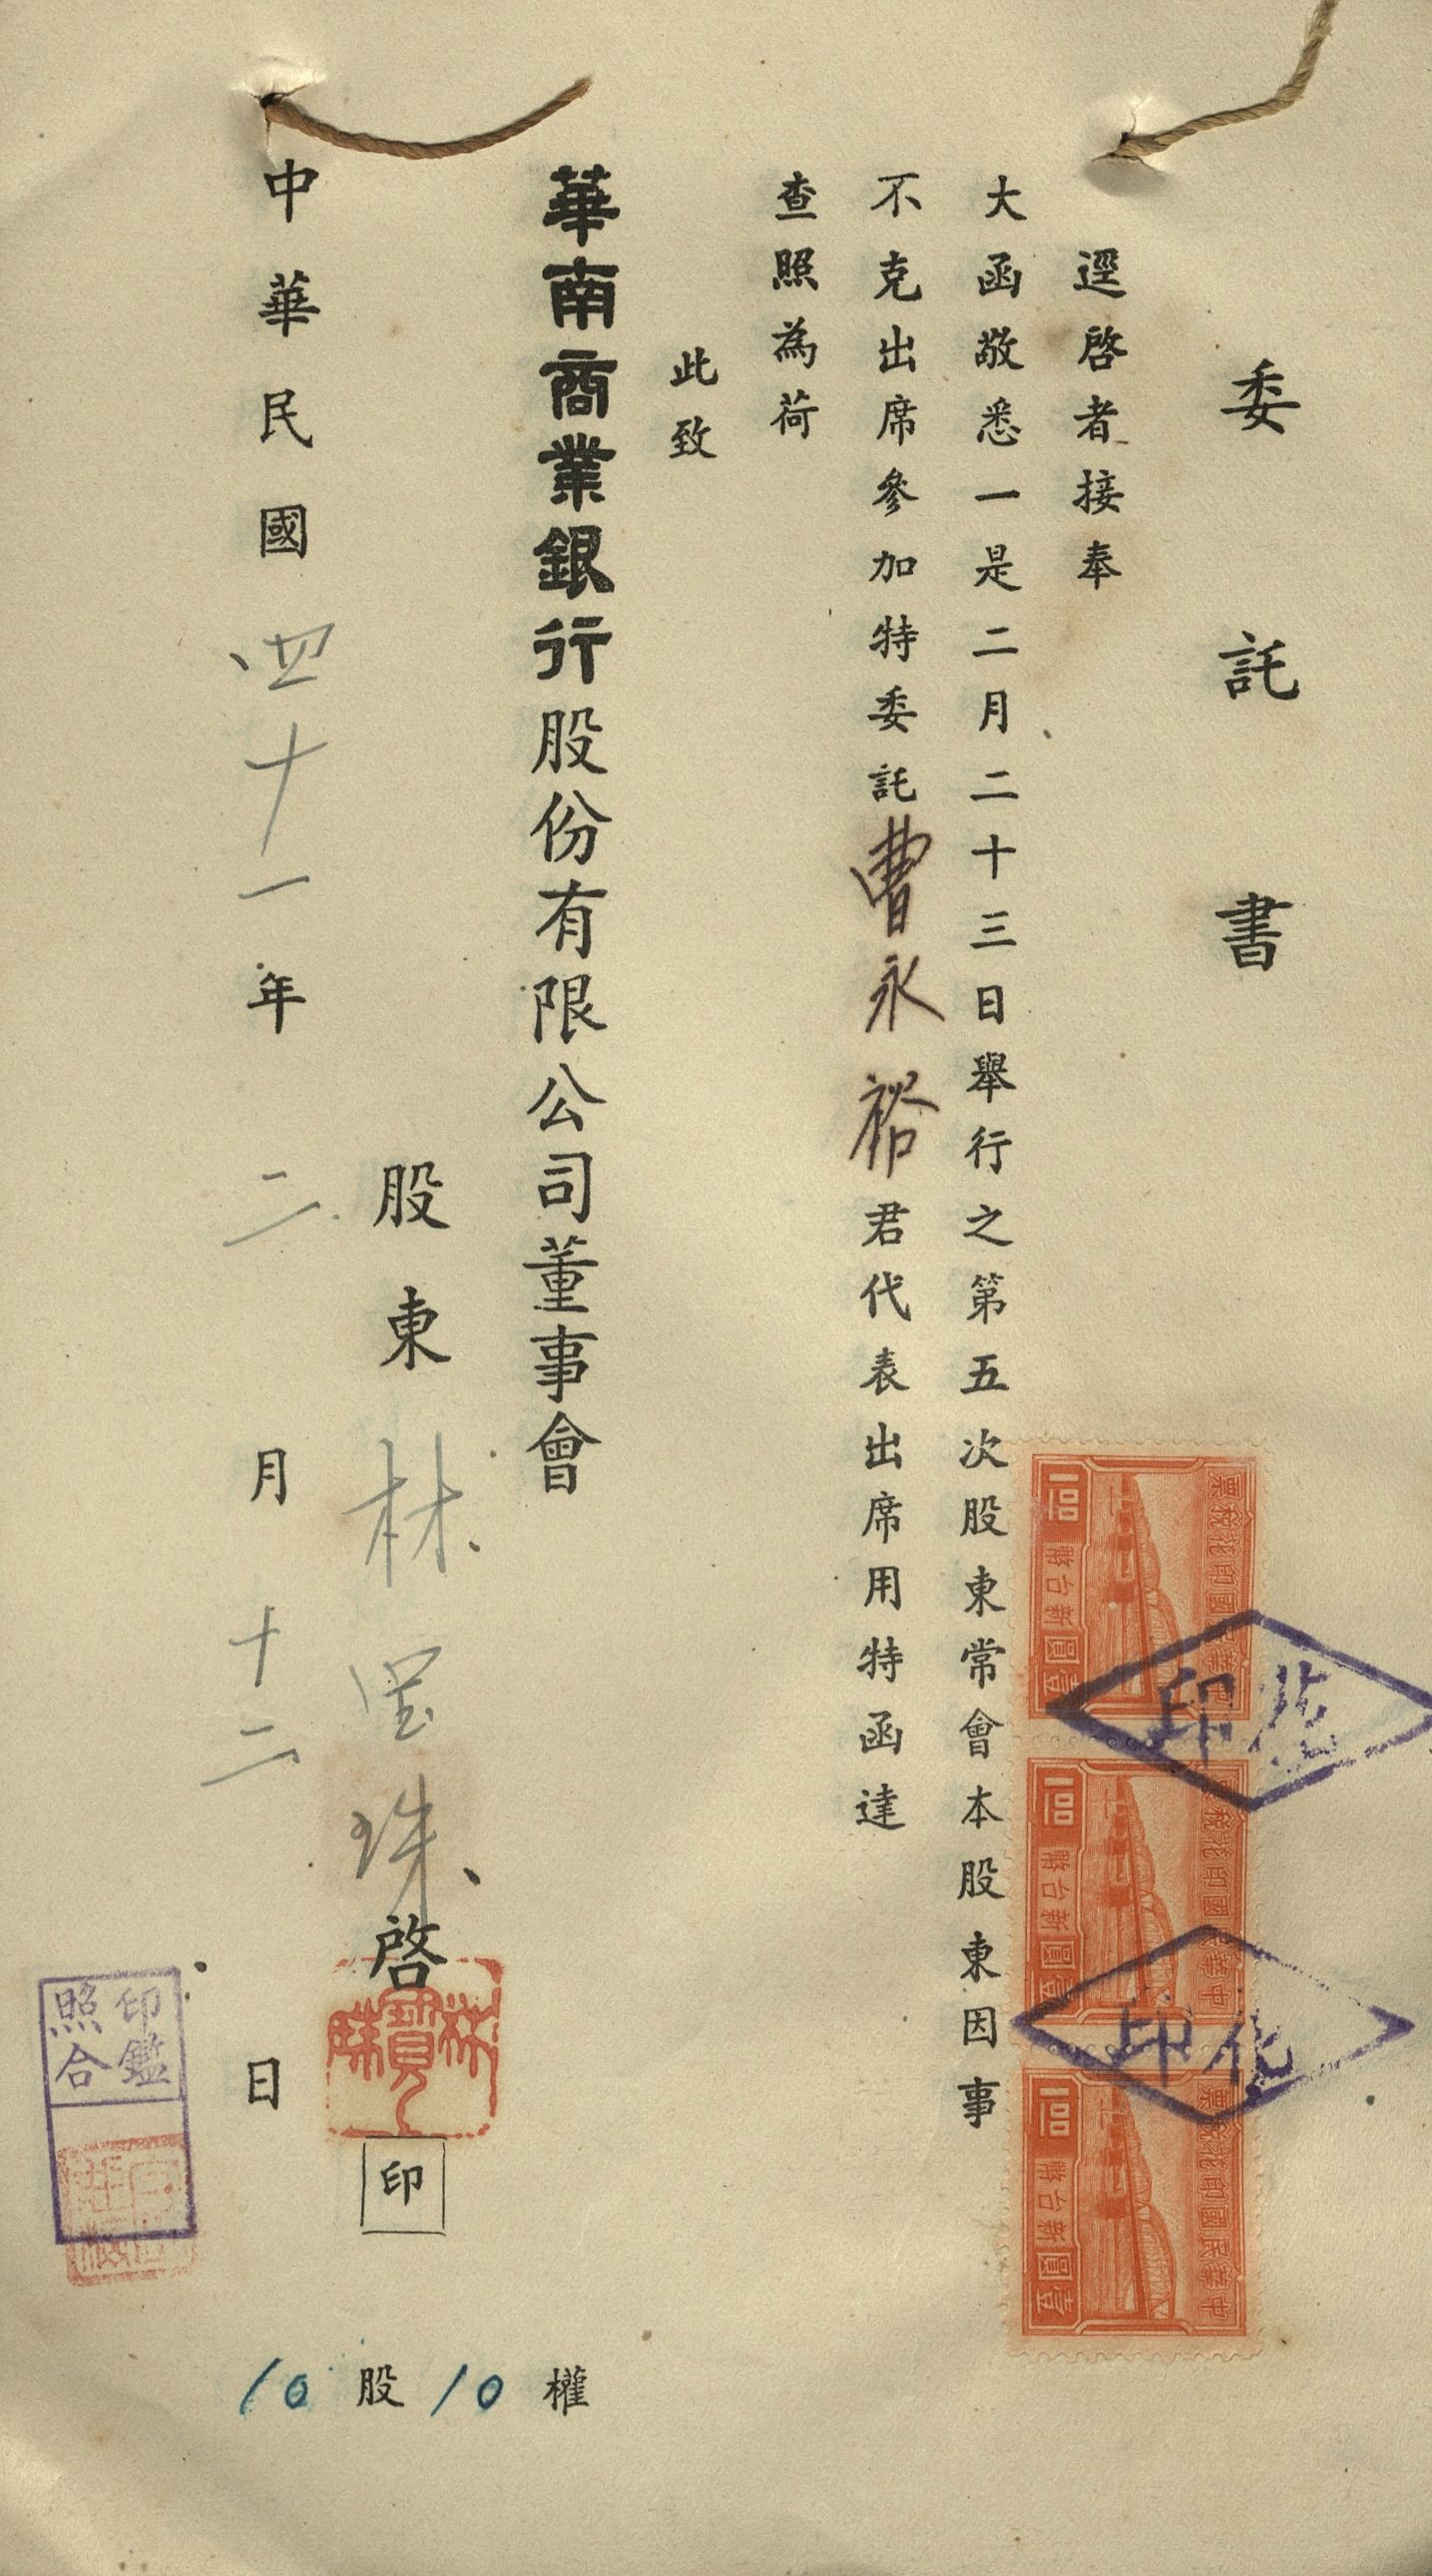 委託書
逕啓者接奉
大函敬悉一是二月二十三日舉行之第五次股東常會本股東因事
不克出席參加特委託曹永裕君代表出席用特函達
查照為荷
此致
華南商業銀行股份有限公司董事會
股東林宝珠啓
林寶珠
印
中華民國四十一年二月十二日
10股10權
印鑑
照合
中華民國印花稅票
新台幣
壹圓
中華民國印花稅票
新台幣
壹圓
中華民國印花稅票
新台幣
壹圓